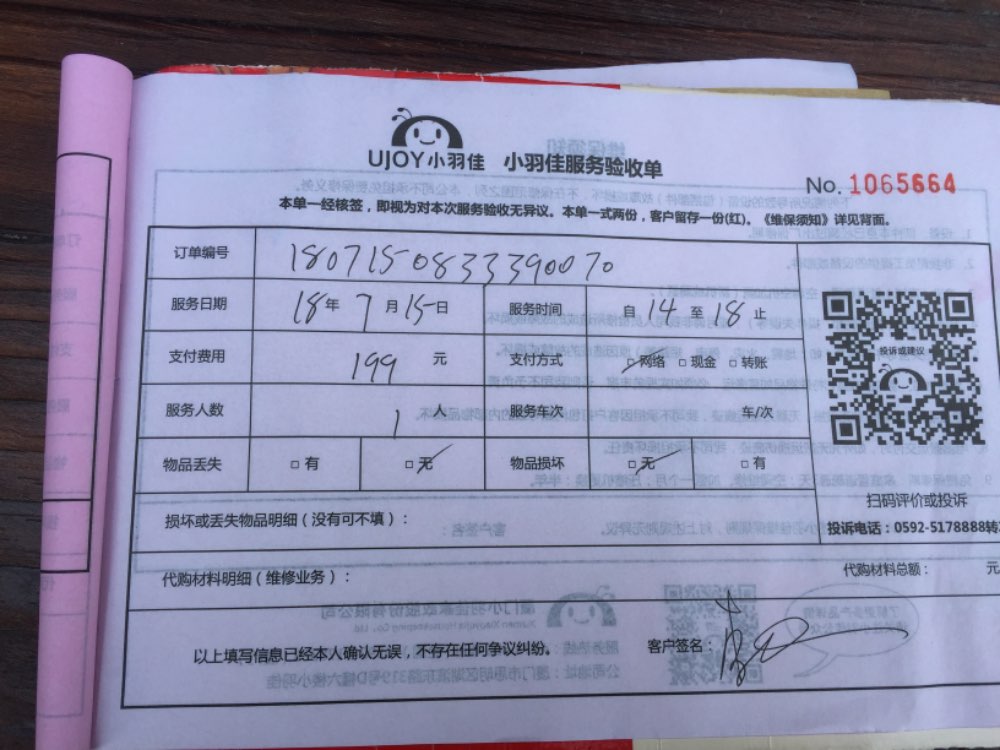 UJOY小羽佳 小羽佳服务验收单
No. 1065664
本单一经核签，即视为对本次服务验收无异议。本单一式两份，客户留存一份(红)。《维保须知》详见背面。
订单编号 1807150833390070
服务日期 18年 7月15日 服务时间 自14至18止
支付费用 199 元 支付方式 □网络 □现金 □转账
服务人数 1人 服务车次 车/次
物品丢失 □有 □无 物品损坏 □无 □有
投诉或建议
扫码评价或投诉
投诉电话：0592-5178888转
损坏或丢失物品明细（没有可不填）：
代购材料明细（维修业务）： 代购材料总额： 元
以上填写信息已经本人确认无误，不存在任何争议纠纷。 客户签名：